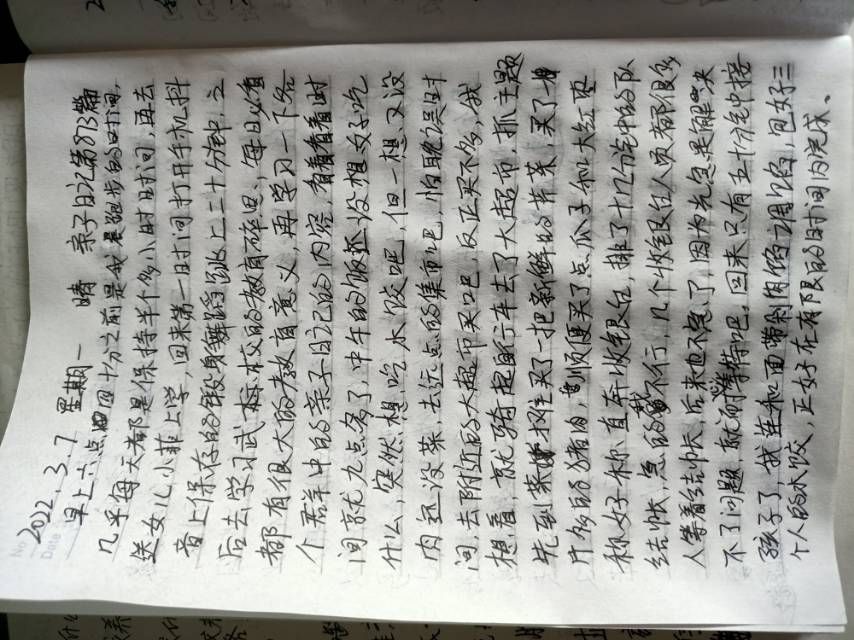 No
Date
2022.3.7 星期一 晴 亲子日记第873篇
早上六点四十分之前是我晨跑步的时间,
几乎每天都是保持半个多小时时间,再去
送女儿小菲上学,回来第一时间打开手机抖
音上保存的健身舞蹈跳上二十分钟,之
后去学习武标校的教育碎思、每日必看
都有很大的教育意义,再学习一下各
个君羊中的亲子日记的内容,看看看看时
间就九点多了,中午的饭还没想好吃
什么,突然想吃水饺吧,但一想又没
肉还没菜,去远点的集市吧,怕耽误时
间,去附近的大超市买吧,反正买不多,我
想着,就骑起自行车去了大超市,抓主题
先到菜摊买了一把新鲜的芹菜,买了一
斤多的猪肉,顺便买了点瓜子和大红枣
称好称,直奔收银台,排了十几分钟的队
结帐,急的我不行,几个收银台人员都很多
人等着结帐,后来也不急了,因为光急是解决
不了问题,就耐心等待吧。回来只有五十分钟接
孩子了,我连和面带剁肉馅调馅,包好三
个人的水饺,正好在有限的时间内完成。